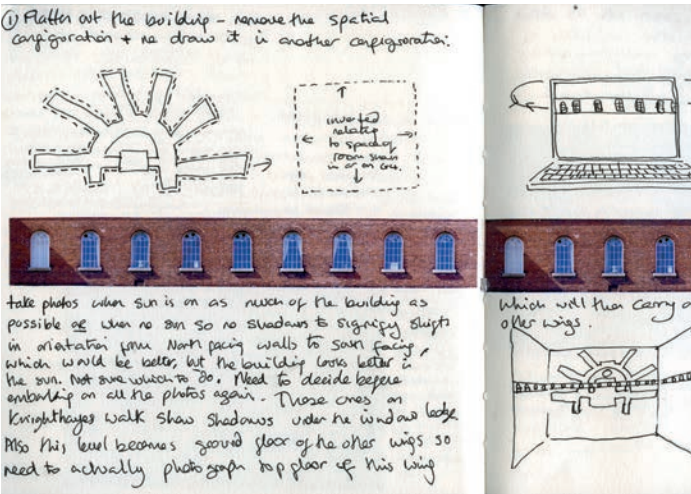 ① Flatten out the building - remove the spatial
configuration + re draw it in another configuration.
inverted
relating
to space of
room shown
in or on
take photos when sun is on as much of the building as
possible or when no sun so no shadows to signify shifts
in orientation from North facing walls to south facing,
which would be better, but the building looks better in
the sun. Not sure which to do. Need to decide before
embarking on all the photos again. These ones on
Knightshayes walk show shadows under the window ledge
Also this level becomes ground floor of the other wigs so
need to actually photograph top floor of this wing
which will then carry o
other wigs.